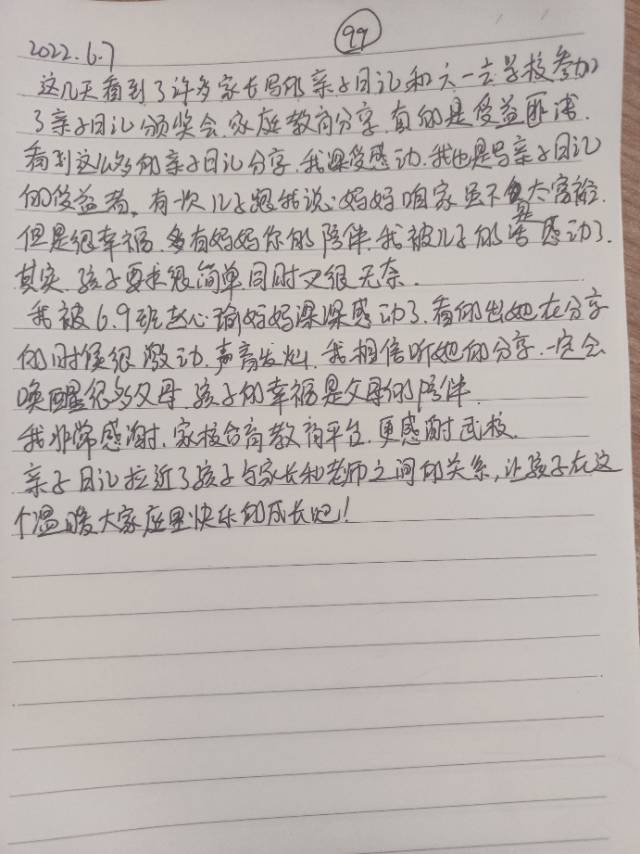 99
2022.6.7
这几天看到了许多家长写的亲子日记和六一去学校参加
了亲子日记颁奖会.家庭教育分享.真的是受益匪浅.
看到这么多的亲子日记分享.我深受感动.我也是写亲子日记
的受益者。有一次儿子跟我说:妈妈咱家虽不是太富裕.
但是很幸福.多有妈妈你的陪伴.我被儿子的话感动了.
其实.孩子要求很简单.同时又很无奈.
我被6.9班赵心瑜妈妈深深感动了.看的出她在分享
的时候很激动.声音发
我相信听她的分享.一定会
唤醒很多父母.孩子的幸福是父母的陪伴.
我非常感谢.家校合育教育平台.更感谢
校.
亲子日记拉近了孩子与家长和老师之间的关系,让孩子在这
个温暖大家庭里快乐的成长吧!